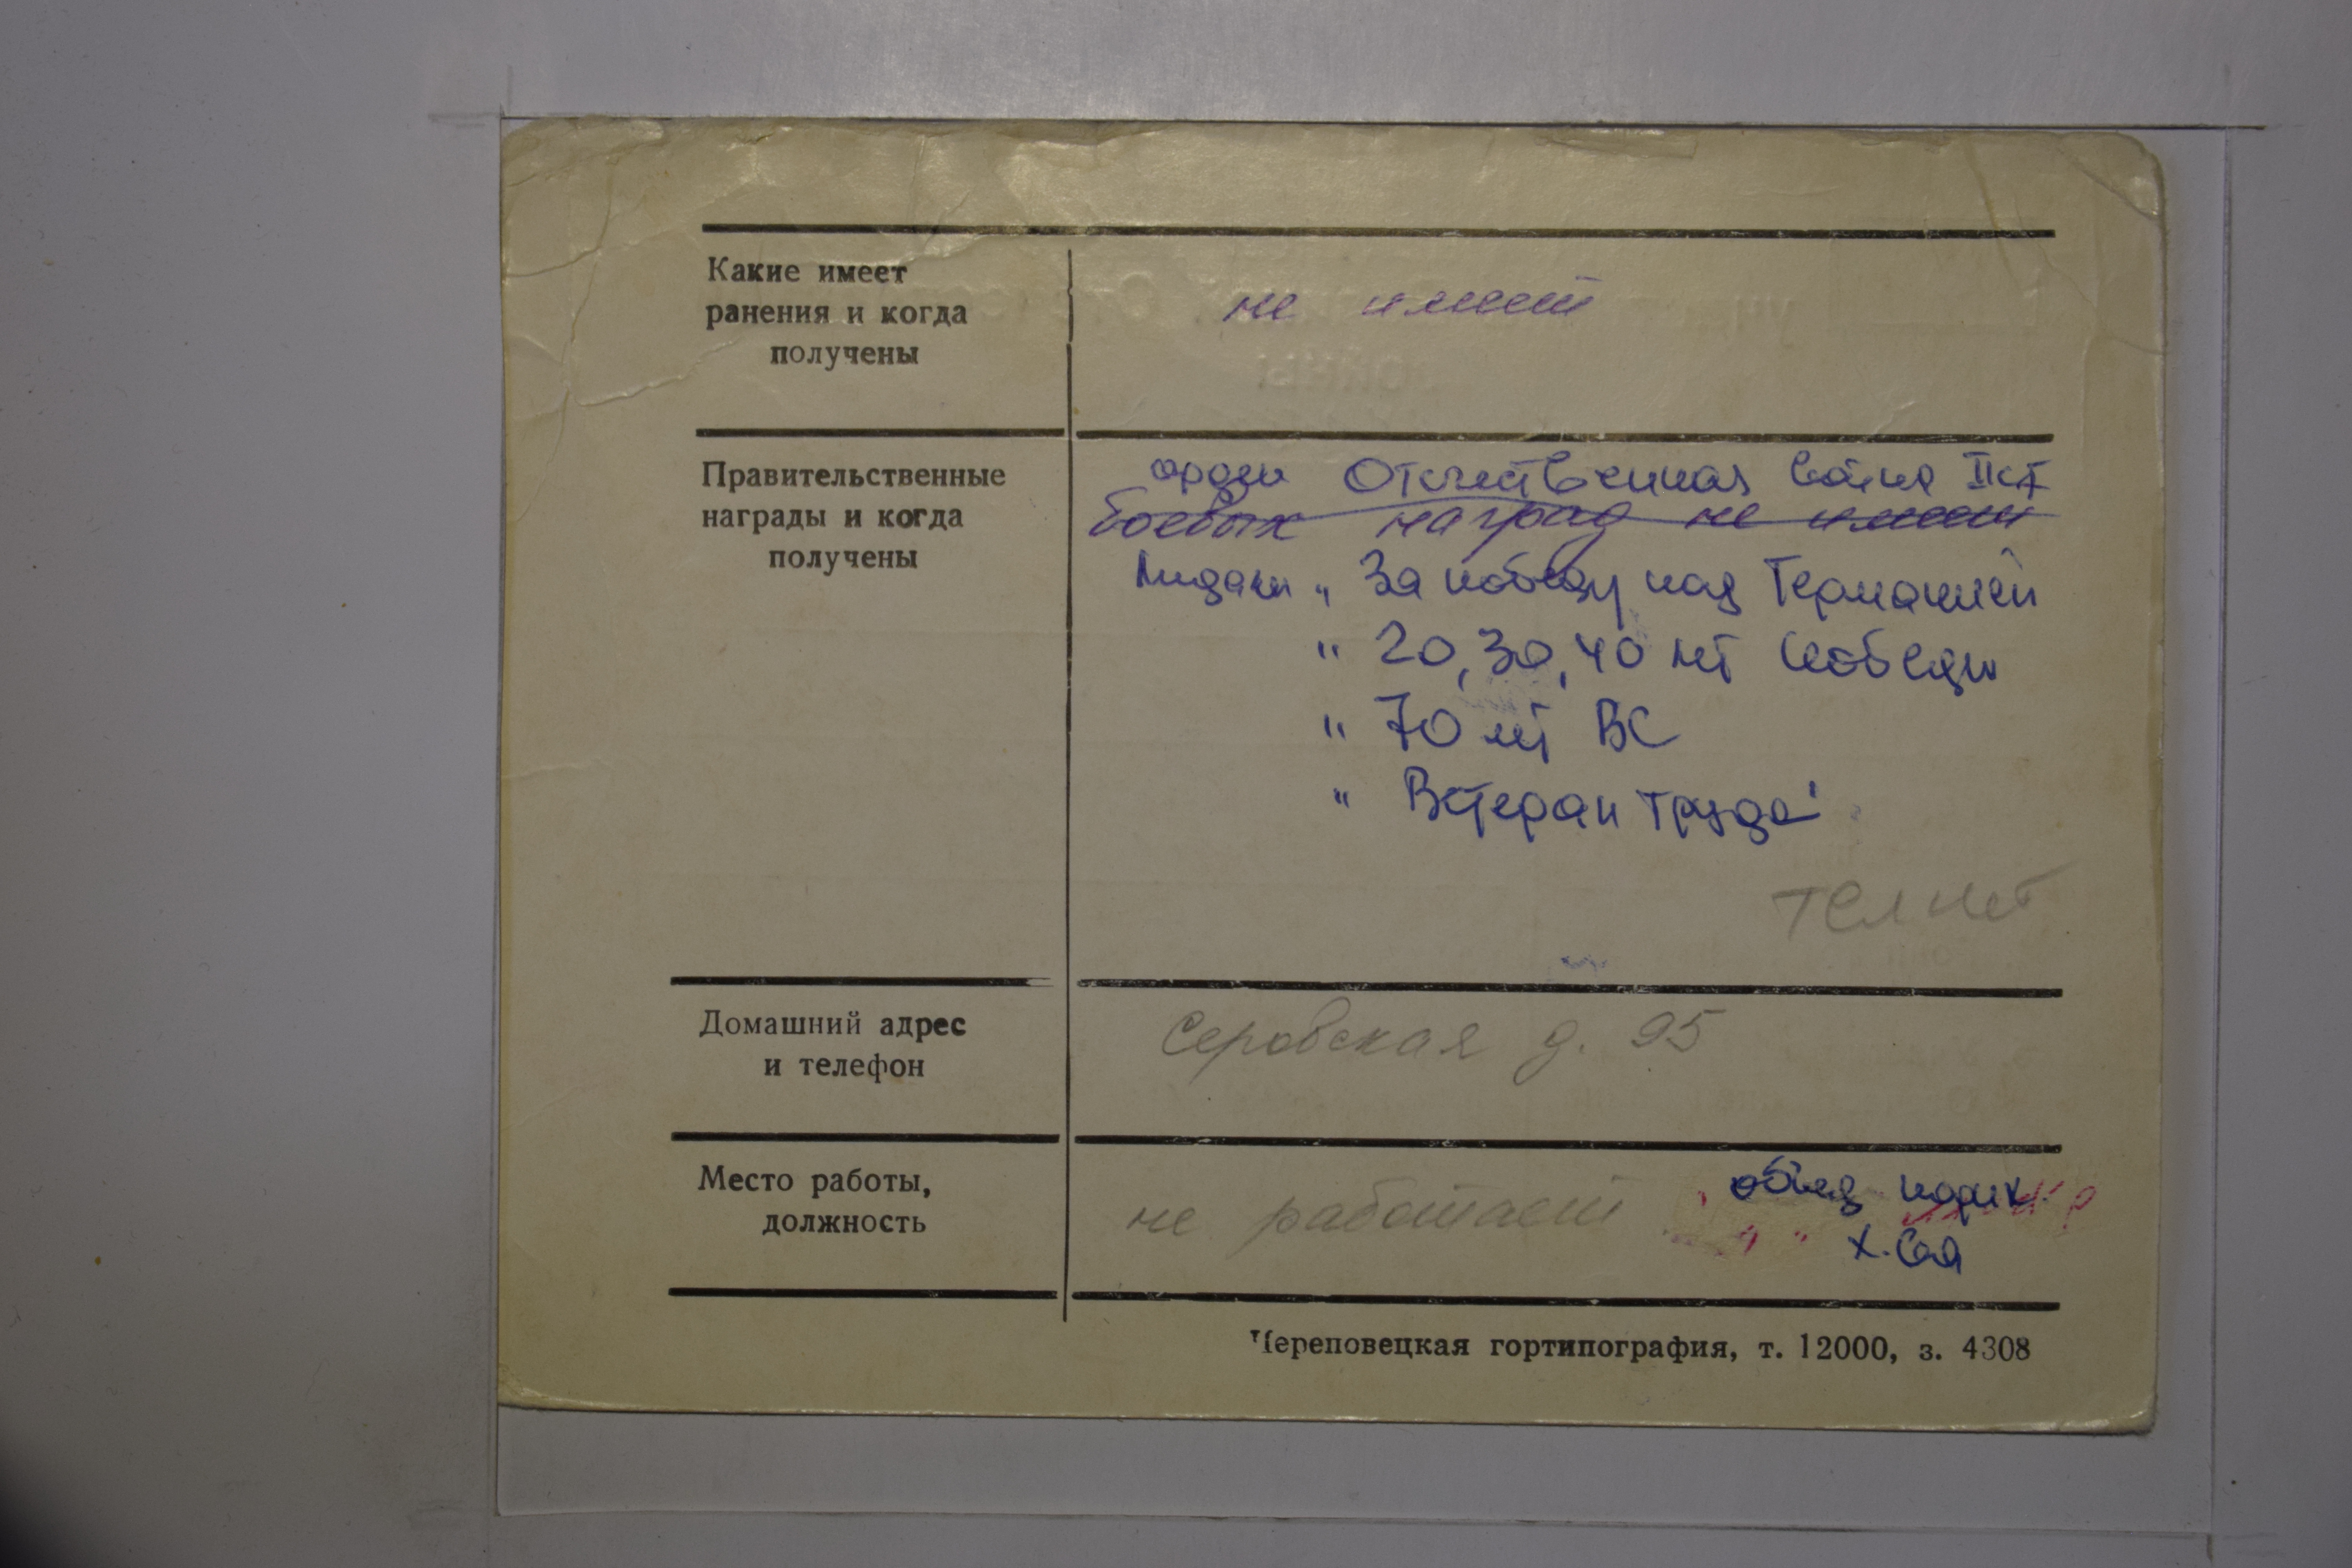 Какие имеет
ранения и когда
получены
не имеет
Правительственные
награды и когда
получены
орден Отечественная война II ст
боевых наград не имеет
Медали „ За победу над Германией
" 20, 30, 40 лет Победы
" 70 лет ВС
" Ветеран труда"
Тел нет
Домашний адрес
и телефон
Серовская д. 95
Место работы,
должность
не работает
х.
Череповецкая гортипография, т. 12000, з. 4308